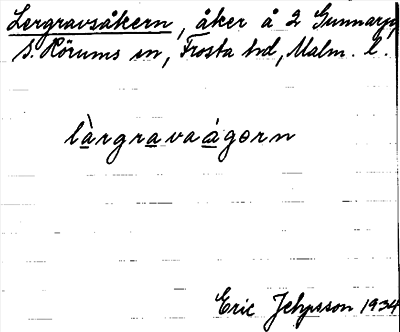 Lergravsåkern, åker å 2 Gunnarp,
S. Rörums sn, Frosta hd, Malm. l.
làrgravaágǝrn
Eric Jepsson 1934